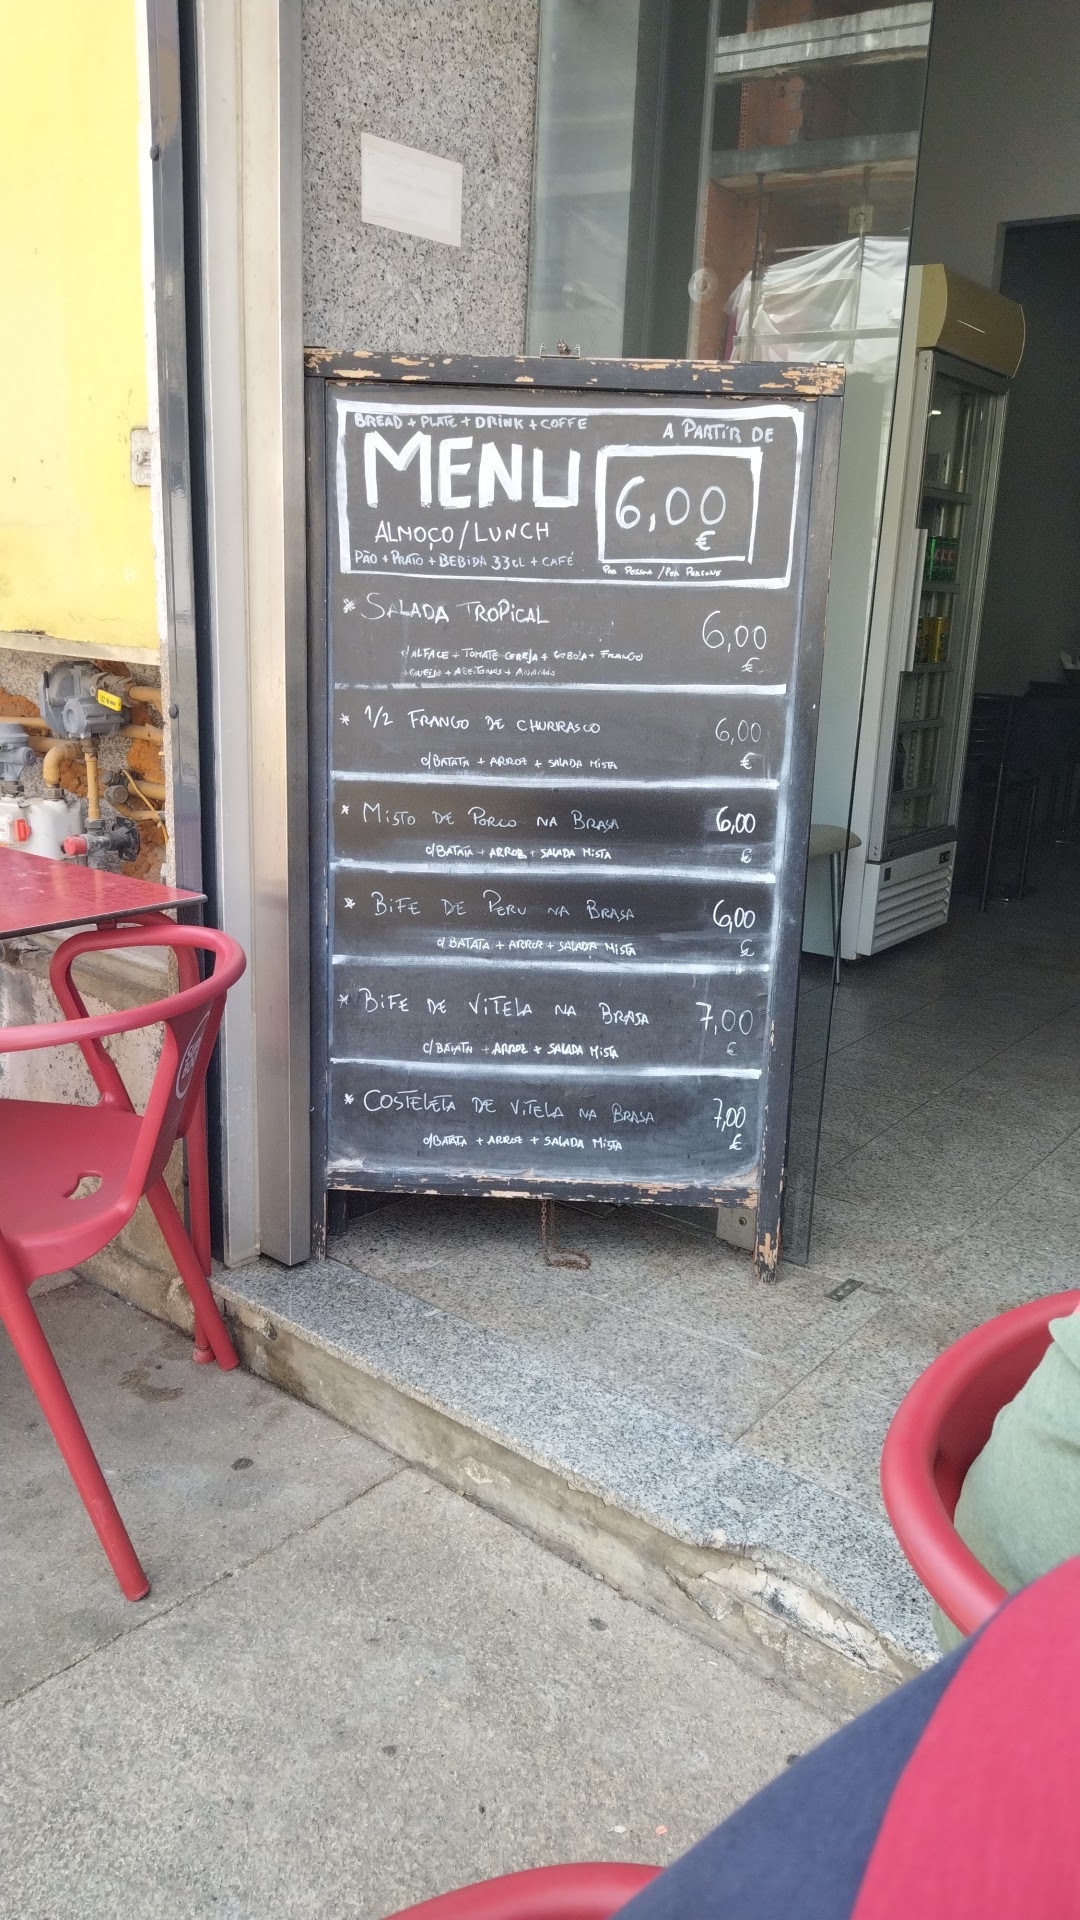 BREAD + PLATE + DRINK + COFFE
A PARTIR DE
MENU
6,00
€
ALMOÇO/LUNCH
PÃO + PRATO + BEBIDA 33CL + CAFÉ
POR PESSOA / PER PERSONE
* SALADA TROPICAL 6,00
c/ALFACE + TOMATE CEREJA + CEBOLA + FRANGO €
+ QUEIJO + AZEITONAS + ANANÁS
* 1/2 FRANGO DE CHURRASCO 6,00
c/BATATA + ARROZ + SALADA MISTA €
* MISTO DE PORCO NA BRASA 6,00
c/BATATA + ARROZ + SALADA MISTA €
* BIFE DE PERU NA BRASA 6,00
c/BATATA + ARROZ + SALADA MISTA €
* BIFE DE VITELA NA BRASA 7,00
c/BATATA + ARROZ + SALADA MISTA €
* COSTELETA DE VITELA NA BRASA 7,00
c/BATATA + ARROZ + SALADA MISTA €